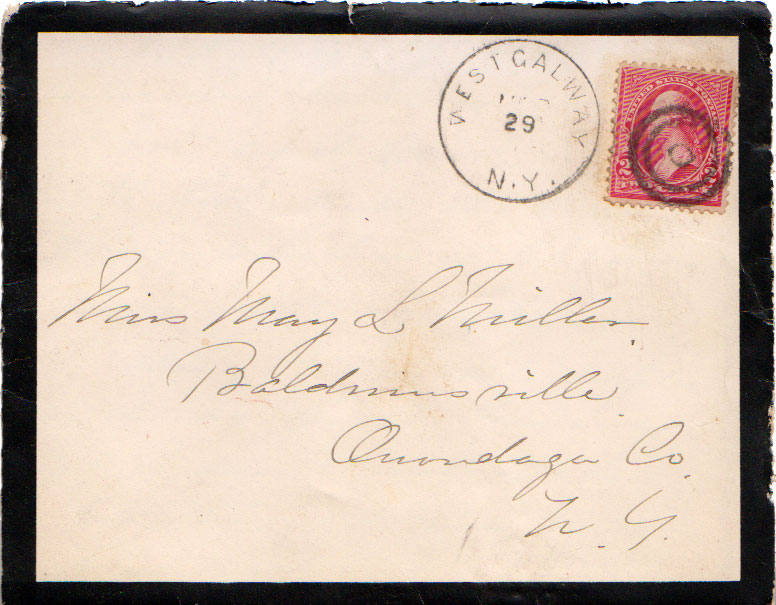 WEST GALWAY
29
N.Y.
UNITED STATES POSTAGE
2
Miss May L Miller
Baldwinsville
Onondaga Co.
N. Y.